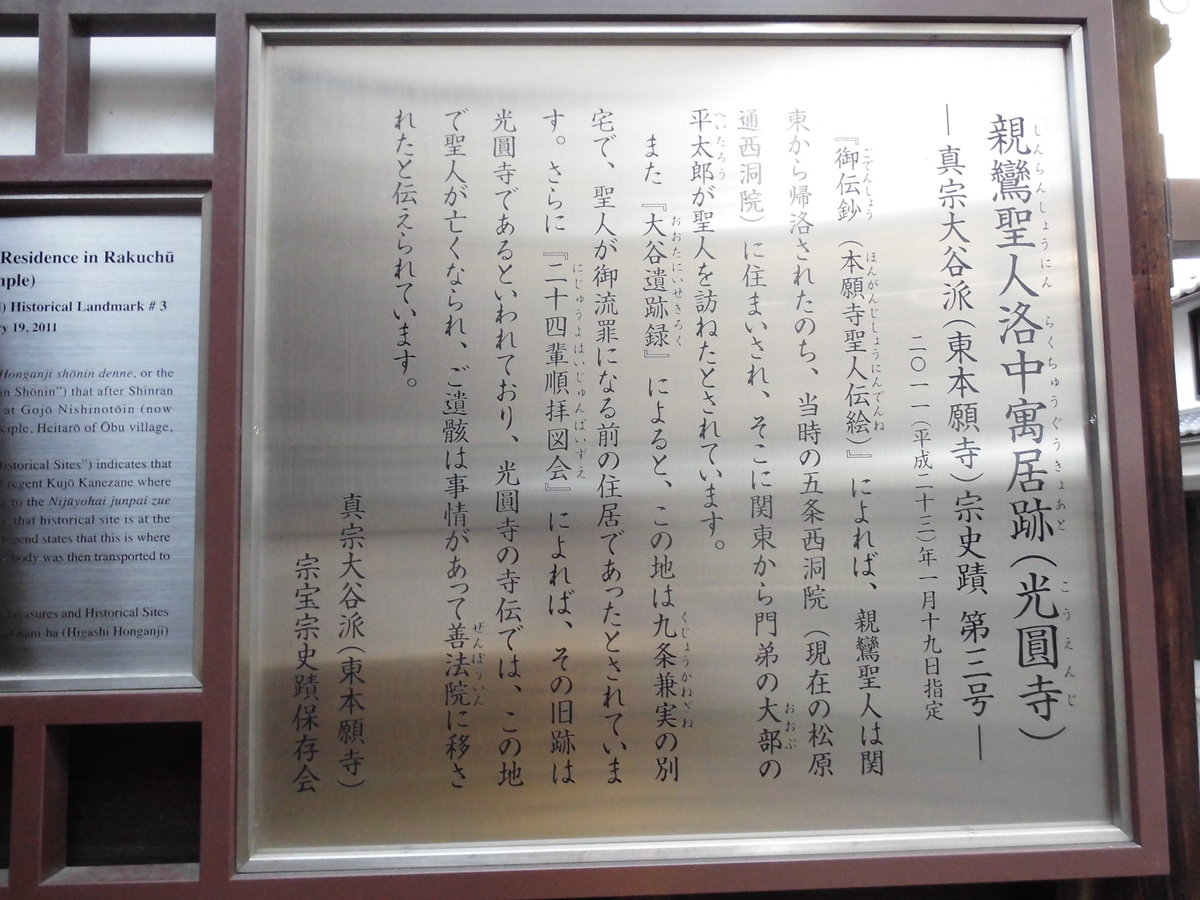 親鸞聖人洛中寓居跡（光圓寺）
しんらんしょうにん らくちゅうぐうきょあと こうえんじ
―真宗大谷派（東本願寺）宗史蹟 第三号―
二〇一一（平成二十三）年一月十九日指定
『御伝鈔（本願寺聖人伝絵）』によれば、親鸞聖人は関
ごでんしょう ほんがんじしょうにんでんね
東から帰洛されたのち、当時の五条西洞院（現在の松原
通西洞院）に住まいされ、そこに関東から門弟の大部の
おおぶ
平太郎が聖人を訪ねたとされています。
へいたろう
また『大谷遺跡録』によると、この地は九条兼実の別
おおたにいせきろく くじょうかねざね
宅で、聖人が御流罪になる前の住居であったとされていま
す。さらに『二十四輩順拝図会』によれば、その旧跡は
にじゅうよはいじゅんぱいずえ
光圓寺であるといわれており、光圓寺の寺伝では、この地
で聖人が亡くなられ、ご遺骸は事情があって善法院に移さ
ぜんぽういん
れたと伝えられています。
真宗大谷派（東本願寺）
宗宝宗史蹟保存会
Residence in Rakuchū
Historical Landmark # 3
19, 2011
Honganji shōnin denne, or the
Shōnin”) that after Shinran
at Gojō Nishinotōin (now
Heitarō of Ōbu village,
Historical Sites”) indicates that
regent Kujō Kanezane where
to the Nijūyohai junpai zue
that historical site is at the
legend states that this is where
body was then transported to
Treasures and Historical Sites
Ōtani-ha (Higashi Honganji)